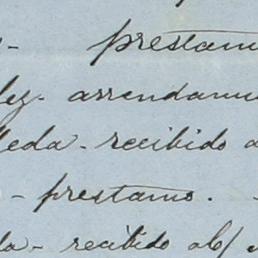 prestamo
lez - arrendamie
leda - recibido a
- prestamo.
da - recibido al/